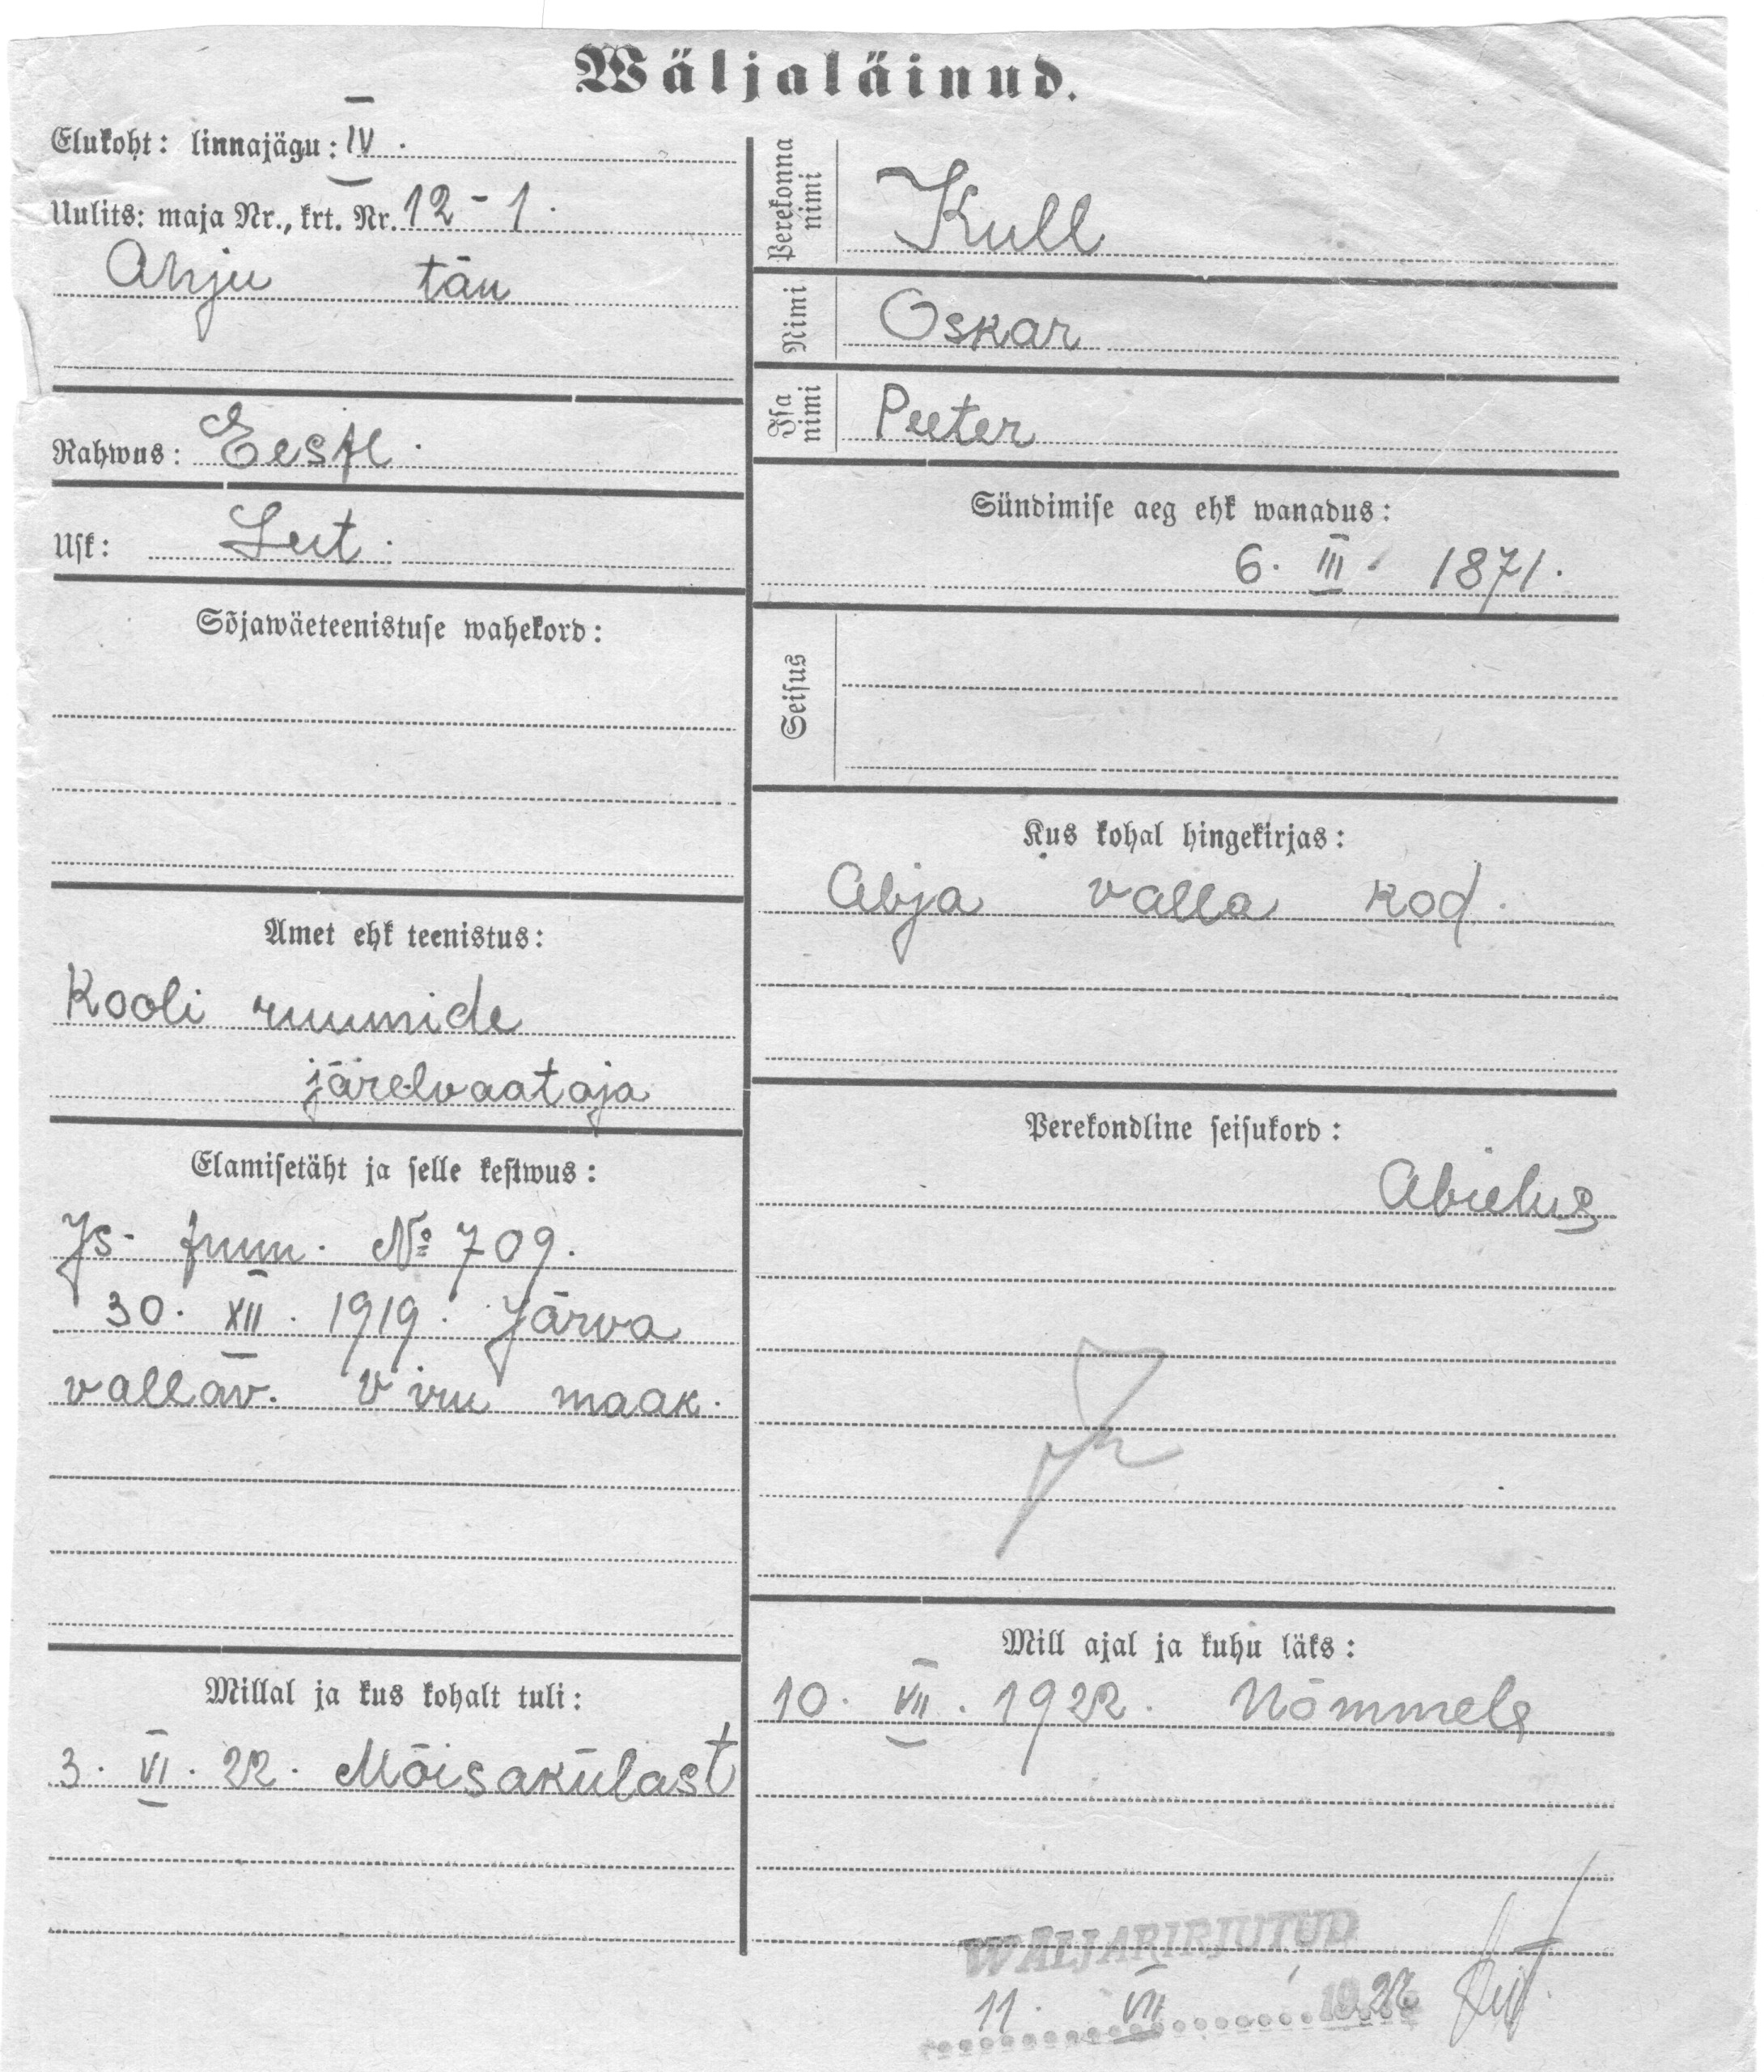 Wäljaläinud.
Elukoht: linnajägu: IV.
Uulits: maja Nr., krt. Nr. 12 - 1.
Ahju tän
Rahwus: Eesti.
Usk: Lut.
Sõjawäeteenistuse wahekord:
Amet ehk teenistus:
Kooli ruumide
järelvaataja
Elamisetäht ja selle kestwus:
Is. tunn. № 709.
30. XII. 1919. Järva
vallav. Viru maak.
Millal ja kus kohalt tuli:
3. VI. 22. Mõisakülast
Perekonna nimi
Kull
Nimi
Oskar
Isa nimi
Peeter
Sündimise aeg ehk wanadus:
6. III. 1871.
Seisus
Kus kohal hingekirjas:
Abja valla kod.
Perekondline seisukord:
Abielus
Mill ajal ja kuhu läks:
10. VII. 1922. Nõmmele
WÄLJAKIRJUTUD
11. VII 1922